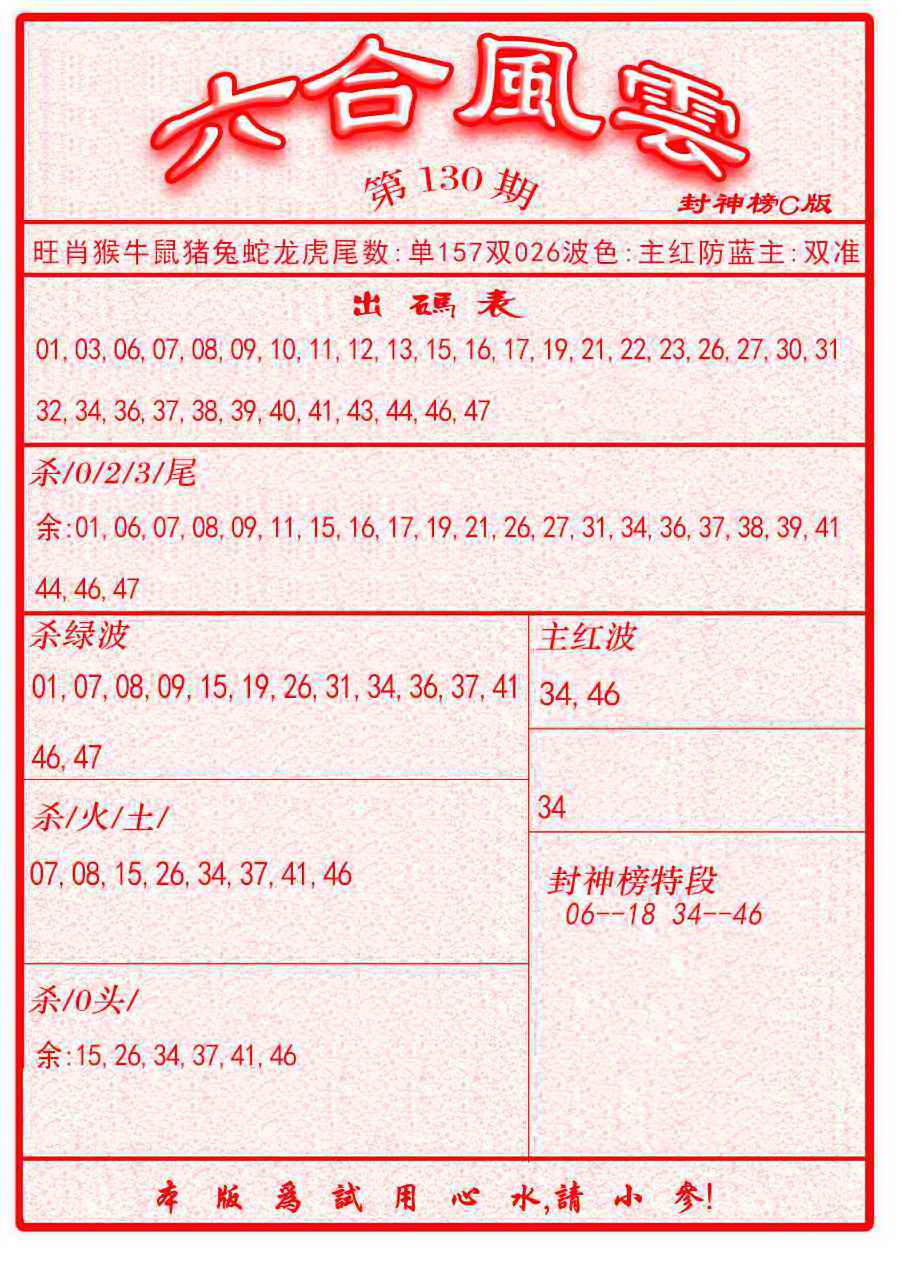 六合風雲
第130期
封神榜C版
旺肖猴牛鼠猪兔蛇龙虎尾数:单157双026波色:主红防蓝主:双准
出碼表
01,03,06,07,08,09,10,11,12,13,15,16,17,19,21,22,23,26,27,30,31
32,34,36,37,38,39,40,41,43,44,46,47
杀/0/2/3/尾
余:01,06,07,08,09,11,15,16,17,19,21,26,27,31,34,36,37,38,39,41
44,46,47
杀绿波
01,07,08,09,15,19,26,31,34,36,37,41
46,47
主红波
34,46
34
杀/火/土/
07,08,15,26,34,37,41,46
封神榜特段
06--18 34--46
杀/0头/
余:15,26,34,37,41,46
本版爲試用心水,請小參!